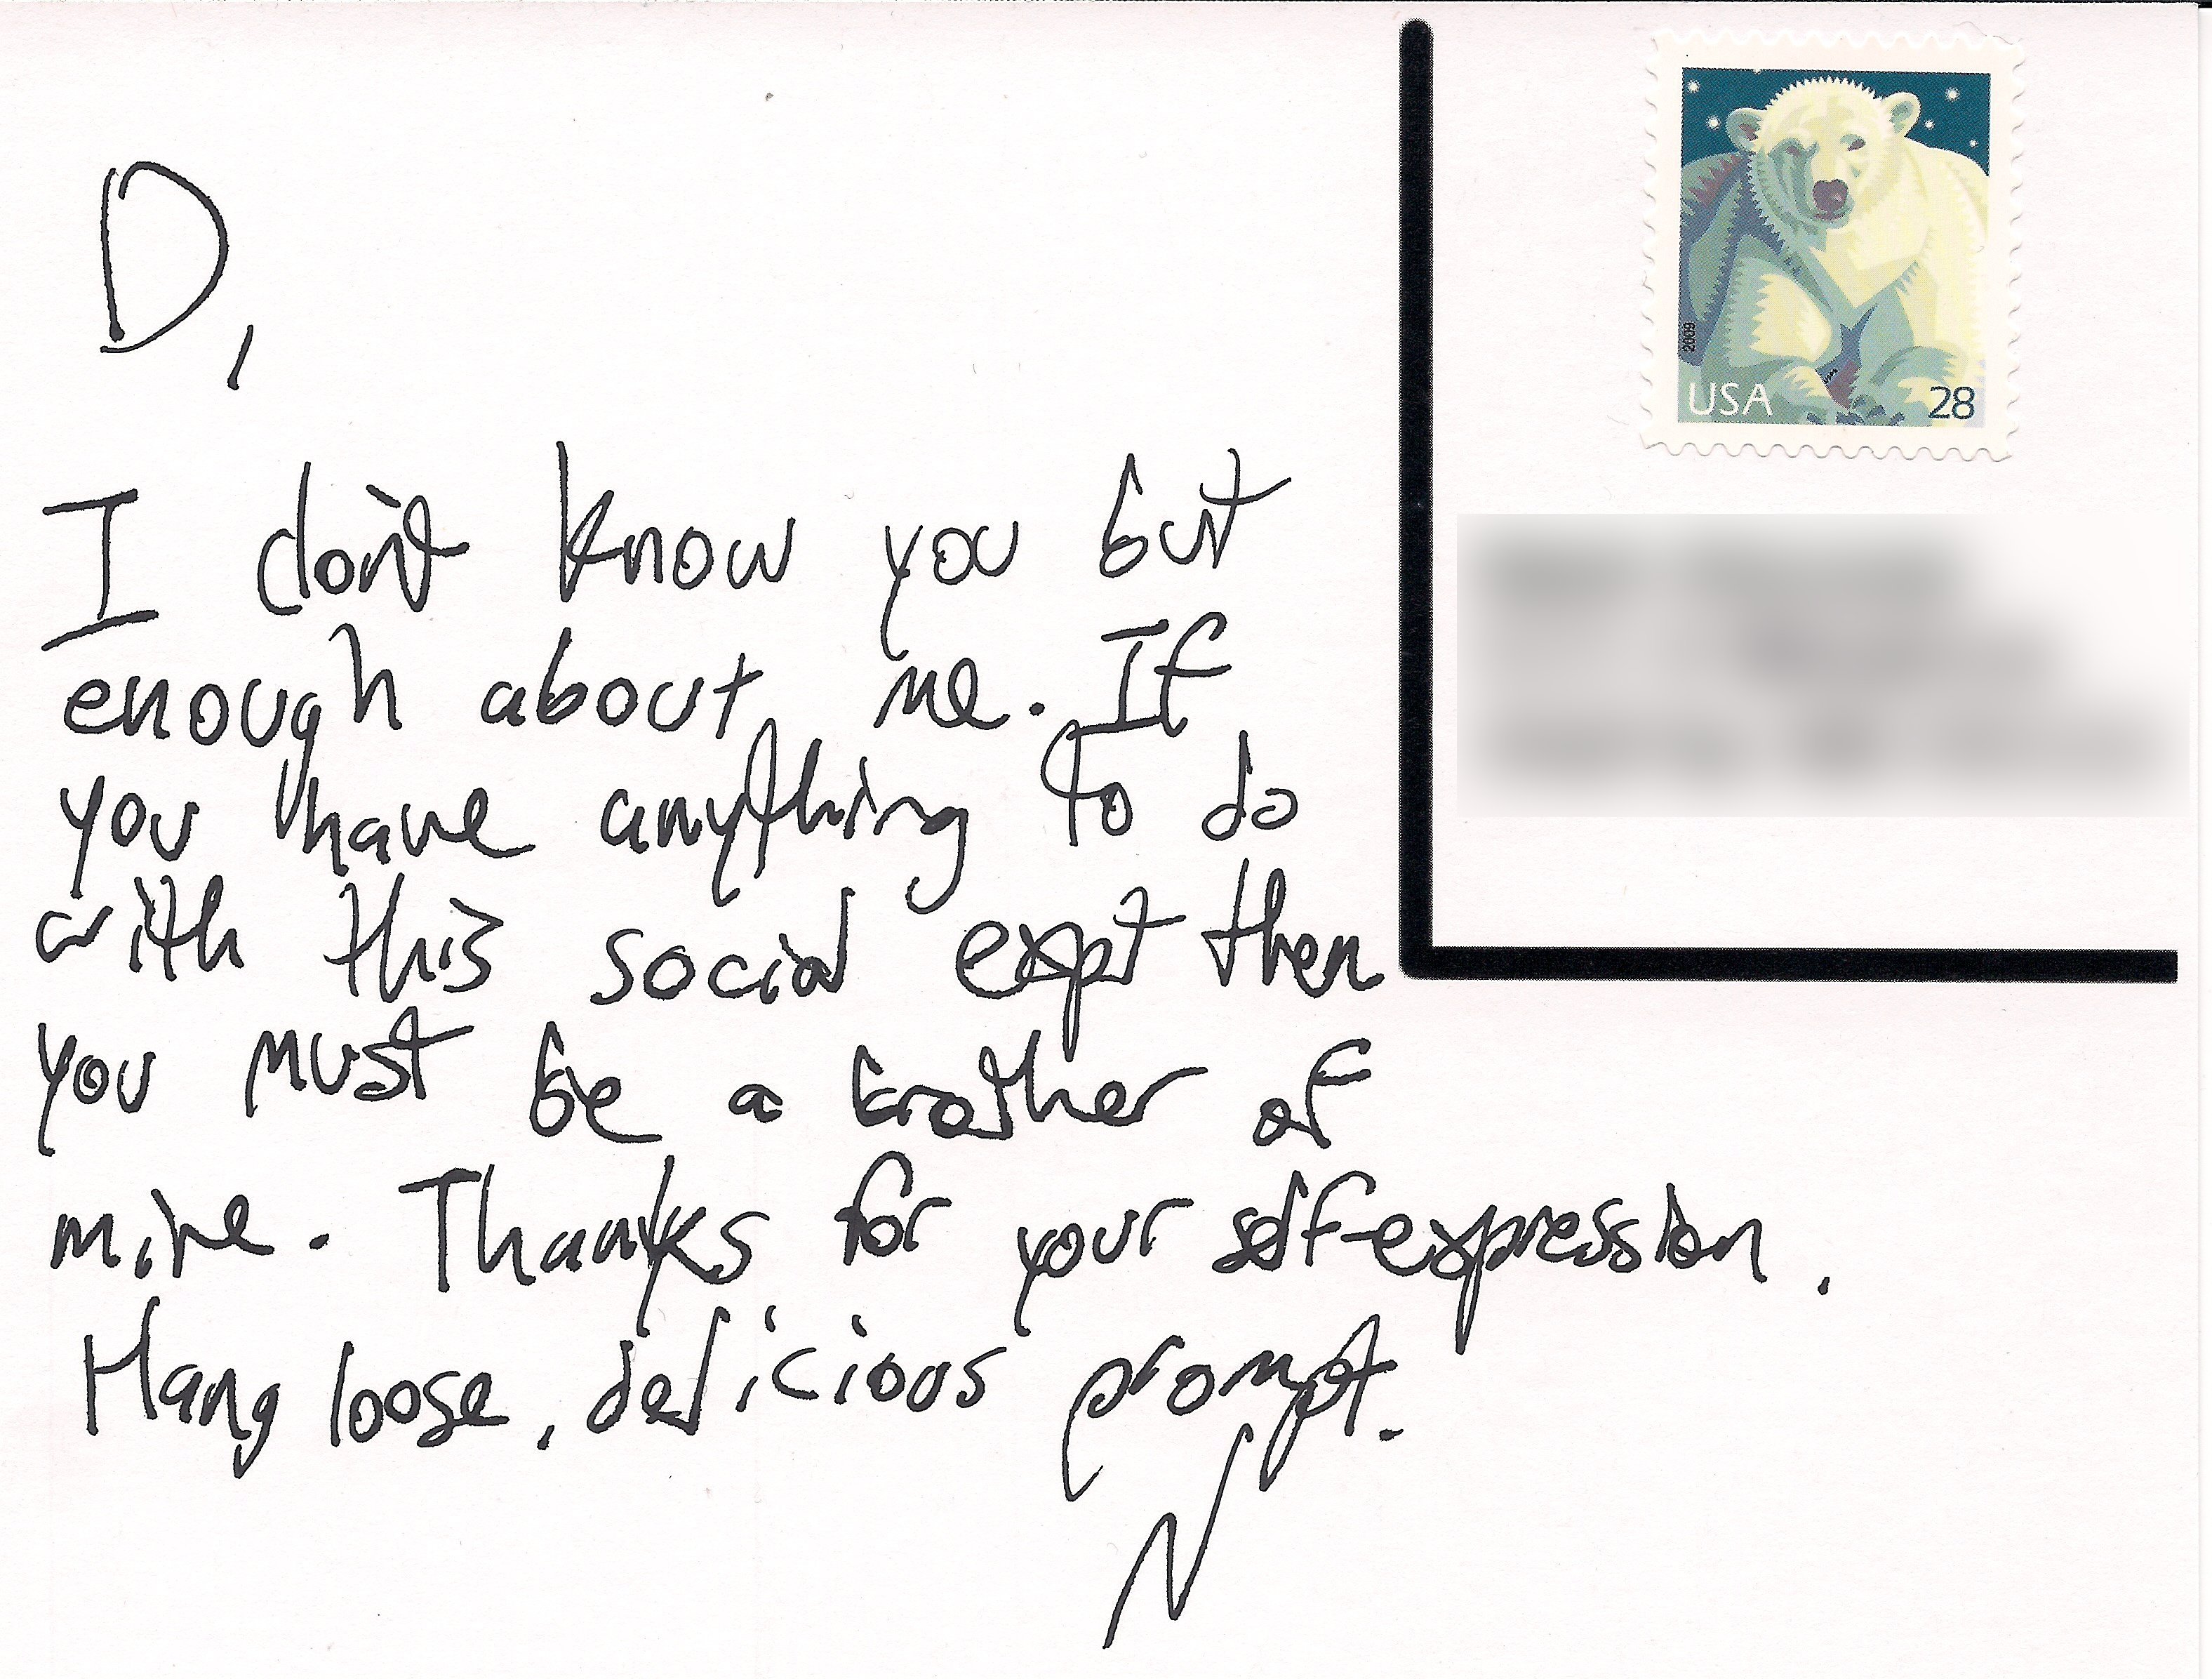 D,
I don't know you but
enough about me. If
you have anything to do
with this social expt then
you must be a brother of
mine. Thanks for your self-expression.
Hang loose, delicious prompt.
N
2009
USA 28